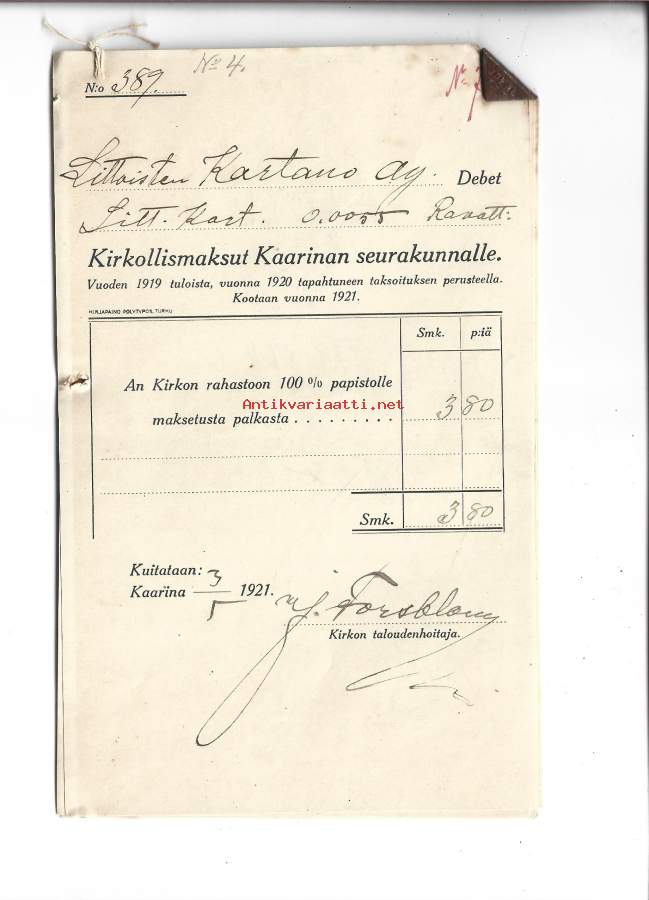 No 4.
N:o 389.
Littoisten Kartano Oy. Debet
Litt. Kart. 0.0055 Ravatt:
Kirkollismaksut Kaarinan seurakunnalle.
Vuoden 1919 tuloista, vuonna 1920 tapahtuneen taksoituksen perusteella.
Kootaan vuonna 1921.
KIRJAPAINO POLYTYPOS, TURKU
Smk. p:iä
An Kirkon rahastoon 100 % papistolle
Antikvariaatti.net
maksetusta palkasta . . . . . . . . . 3 80
Smk. 3 80
Kuitataan:
Kaarina 3/5 1921. Forsblom
Kirkon taloudenhoitaja.